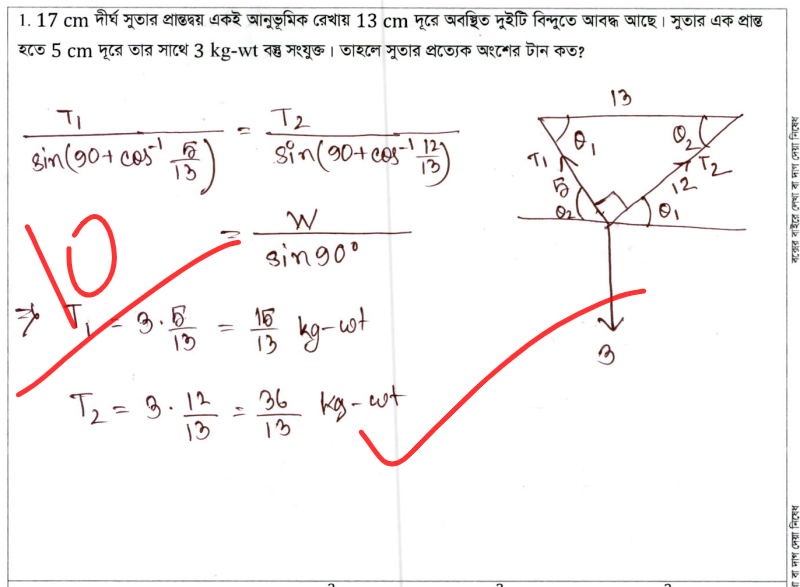 1. 17 cm দীর্ঘ সুতার প্রান্তদ্বয় একই আনুভূমিক রেখায় 13 cm দূরে অবস্থিত দুইটি বিন্দুতে আবদ্ধ আছে। সুতার এক প্রান্ত
হতে 5 cm দূরে তার সাথে 3 kg-wt বস্তু সংযুক্ত। তাহলে সুতার প্রত্যেক অংশের টান কত?
T₁ / sin(90+cos⁻¹ 5/13) = T₂ / sin(90+cos⁻¹ 12/13)
= W / sin90°
10
⇒ T₁ = 3 · 5/13 = 15/13 kg-wt
T₂ = 3 · 12/13 = 36/13 kg-wt
13
θ₁ θ₂
T₁ T₂
5 12
θ₂ θ₁
3
বক্সের বাইরে লেখা বা দাগ দেয়া নিষেধ
া বা দাগ দেয়া নিষেধ